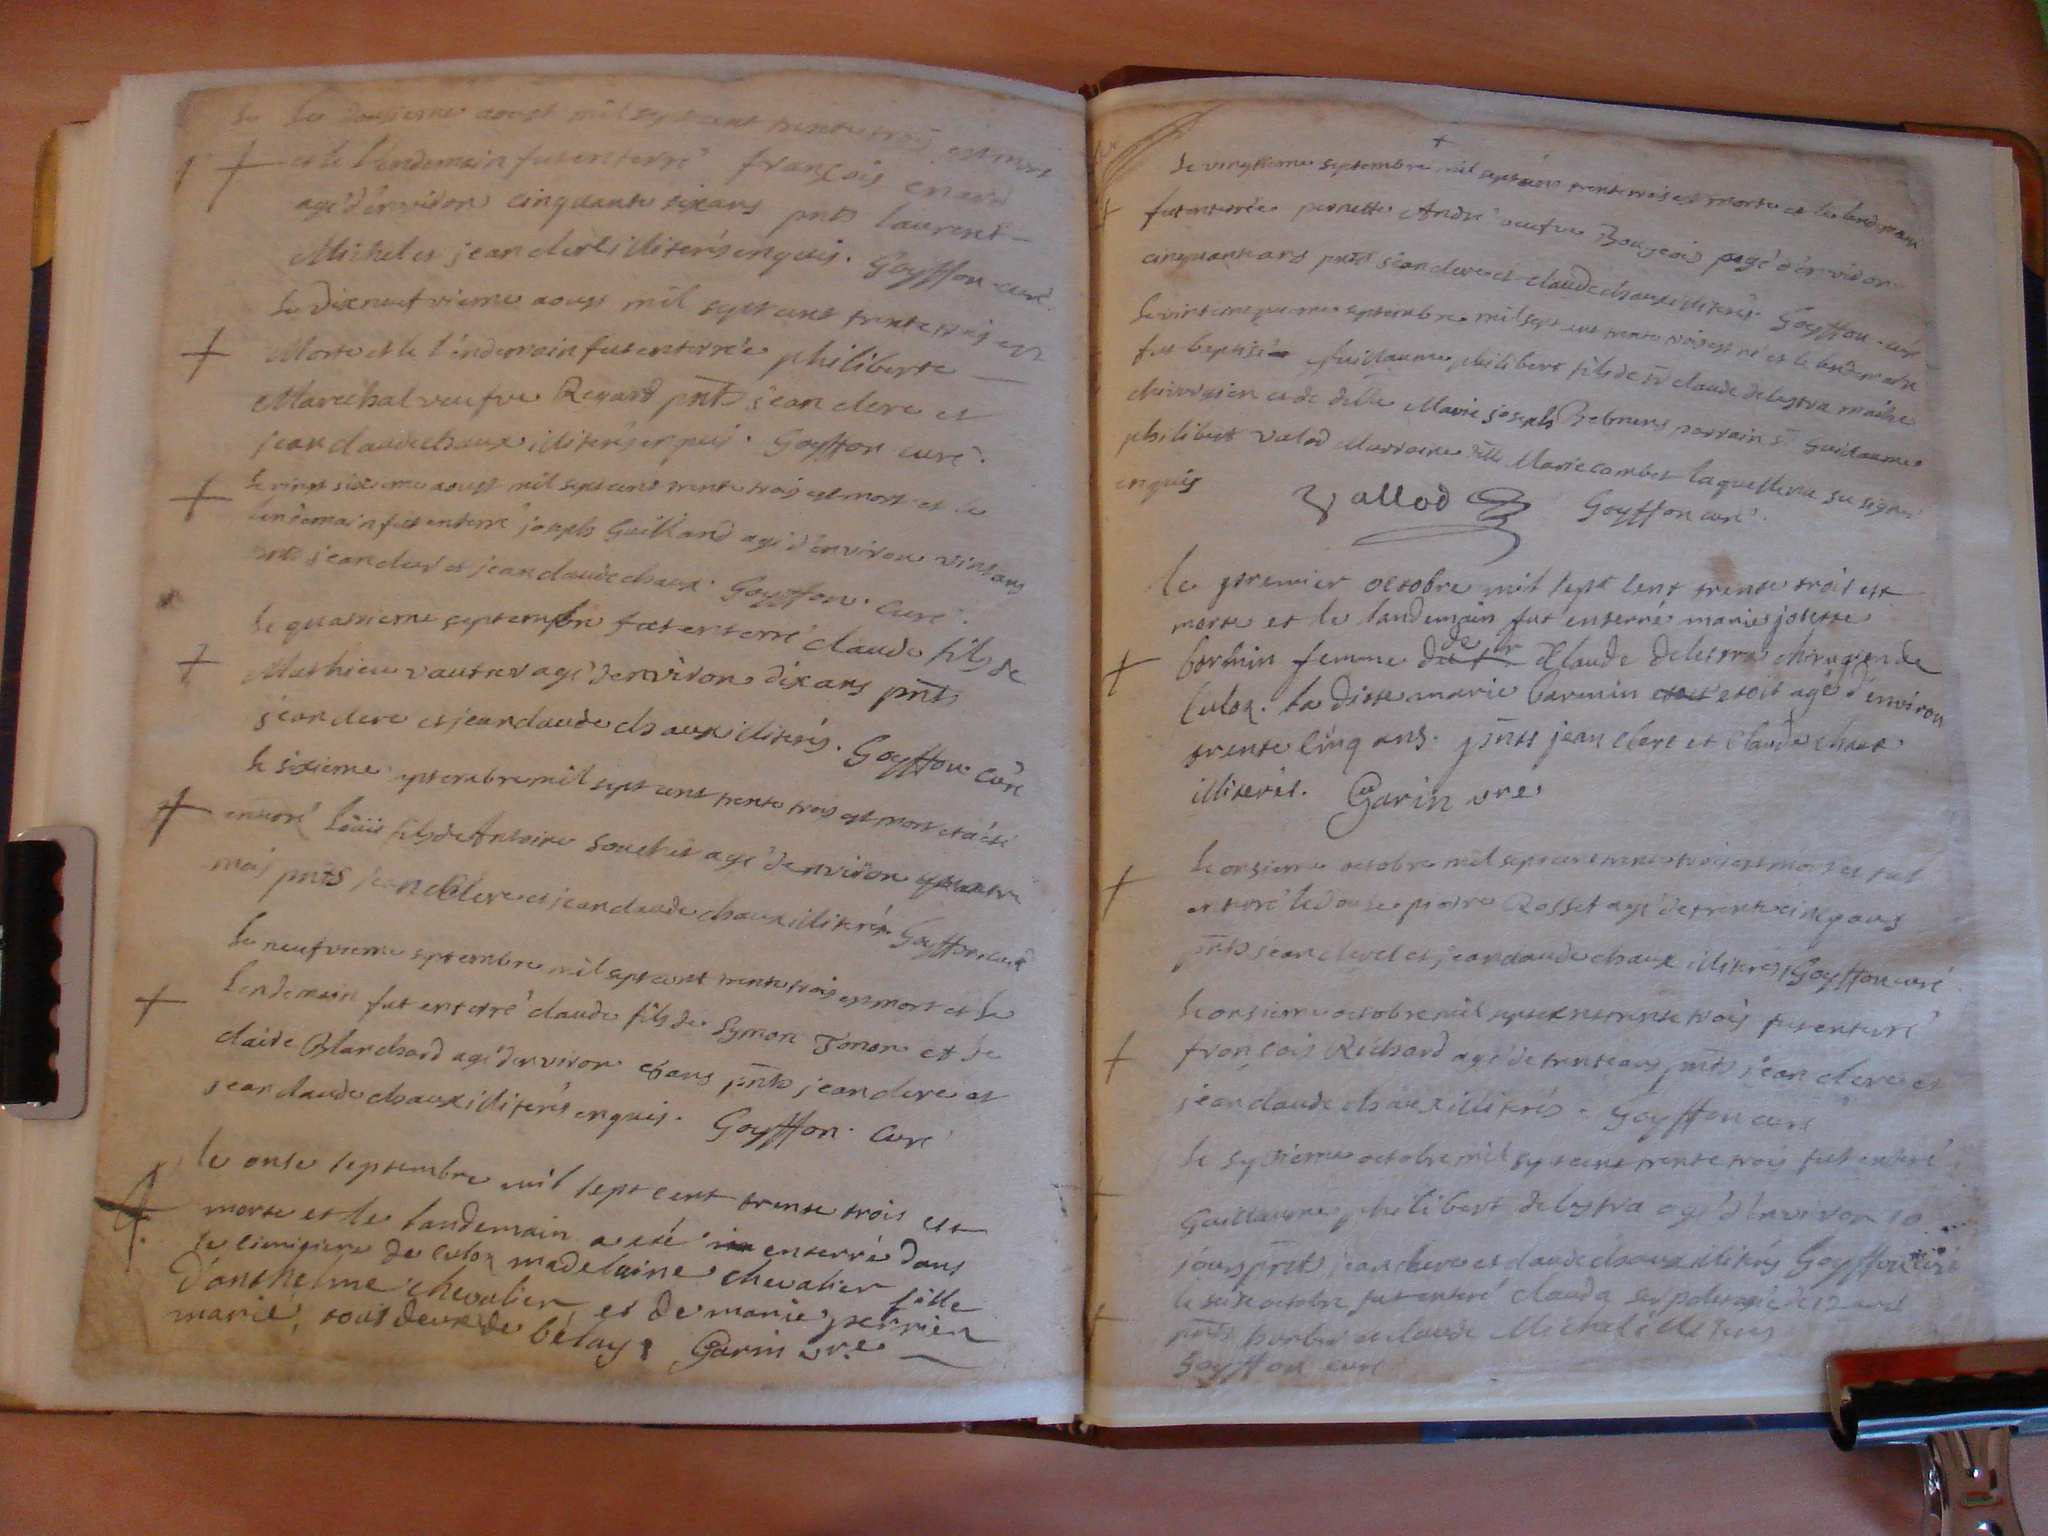 Le dousieme aoust mil sept cent trente trois est mort
et le lendemain fut enterré françois
agé d'environ cinquante six ans pnts laurent
Michel et jean clerc illiterés enquis. Goyffon curé
Le dix neufvieme aoust mil sept cent trente trois est
Morte et le l'endemain fut enterrée philiberte
Marechal veufve Regard pnts jean clerc et
jean claude chaux illiterés enquis. Goyffon curé.
Le vingt sixieme aoust mil sept cent trente trois est mort et le
lendemain fut enterré joseph Guilland agé d'environ vint ans
pnts jean clerc et jean claude chaux. Goyffon. Curé.
Le quatrieme septembre fut enterré claude fils de
Mathieu vautrer agé d'environ dix ans pnts
jean clerc et jean claude chaux illiterés. Goyffon curé
le sixieme septembre mil sept cent trente trois est mort et a été
enterré Loüis fils de Antoine Souchet agé d'environ quatre
mois pnts jean clerc et jean claude chaux illiterés Goyffon curé
Le neufvieme septembre mil sept cent trente trois est mort et le
lendemain fut enterré claude fils de Symon et de
claide Blanchard agé d'environ ans pnts jean clerc et
jean claude chaux illiterés enquis. Goyffon. Curé
le onse septembre mil sept cent trente trois est
morte et le landemain a eté enterré dans
le cimitiere de culoz madeleine chevalier fille
d'anthelme chevalier et de marie perrier
mariés, tous deux de bélay. Garin vre
Le vingtieme septembre mil sept cent trente trois est morte et le lendemain
fut enterrée pernette André veufve Bourjois agé d'environ
cinquante ans pnts jean clerc et claude chaux illiterés. Goyffon curé
Le vintcinquieme septembre mil sept cent trente trois est né et le lendemain
fut baptisé Guillaume philibert fils de sr claude delestra maitre
chirurgien et de delle Marie joseph parrain sr Guillaume
philibert valod Marraine delle Marie combet laquelle n'a su signer
enquis Vallod Goyffon curé.
le premier octobre mil sept cent trente trois est
morte et le landemain fut enterré marie josette
barmin femme de sr Claude delestra chirugien de
Culoz. la ditte marie barmin etoit agé d'environ
trente cinq ans. pnts jean clerc et Claude chaux
illiterés. Garin vre
Le onsieme octobre mil sept cent trente trois est mort et fut
enterré le douse pierre Rosset agé de trente cinq ans
pnts jean clerc et jean claude chaux illiterés Goyffon curé
Le onsieme octobre mil sept cent trente trois fut enterré
françois Richard agé de trente ans pnts jean clerc et
jean claude chaux illiterés. Goyffon curé
Le sixieme octobre mil sept cent trente trois fut enterré
Guillaume philibert delestra agé d'environ 10
jours pnts jean clerc et claude chaux illiterés Goyffon curé
le seise octobre fut enterré claude agé de 12 ans
pnts et claude Michel illiterés
Goyffon curé